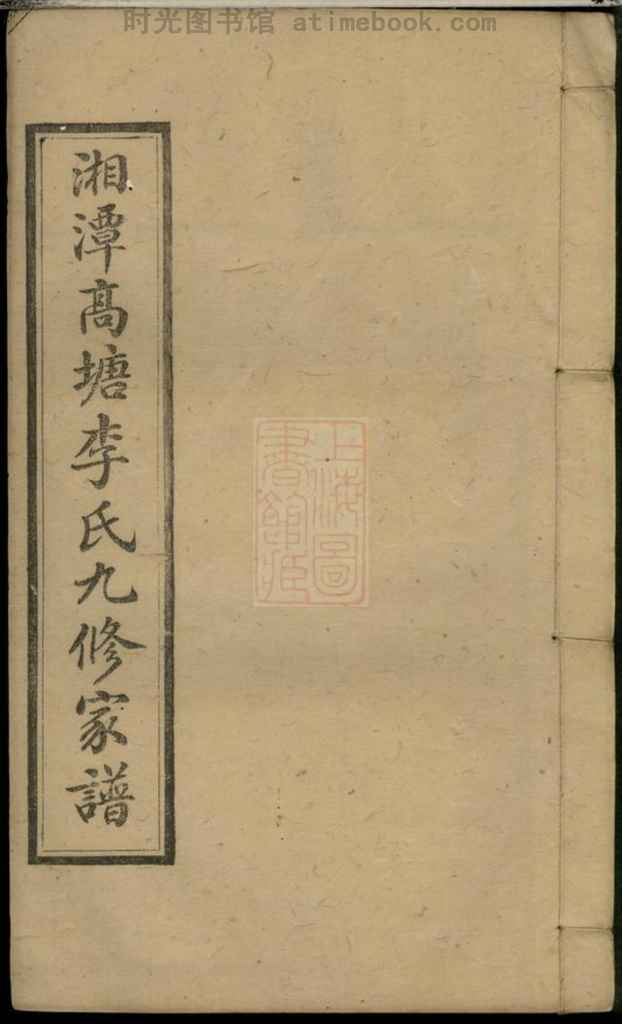 时光图书馆 atimebook.com
湘潭高塘李氏九修家譜
上海圖
書館藏